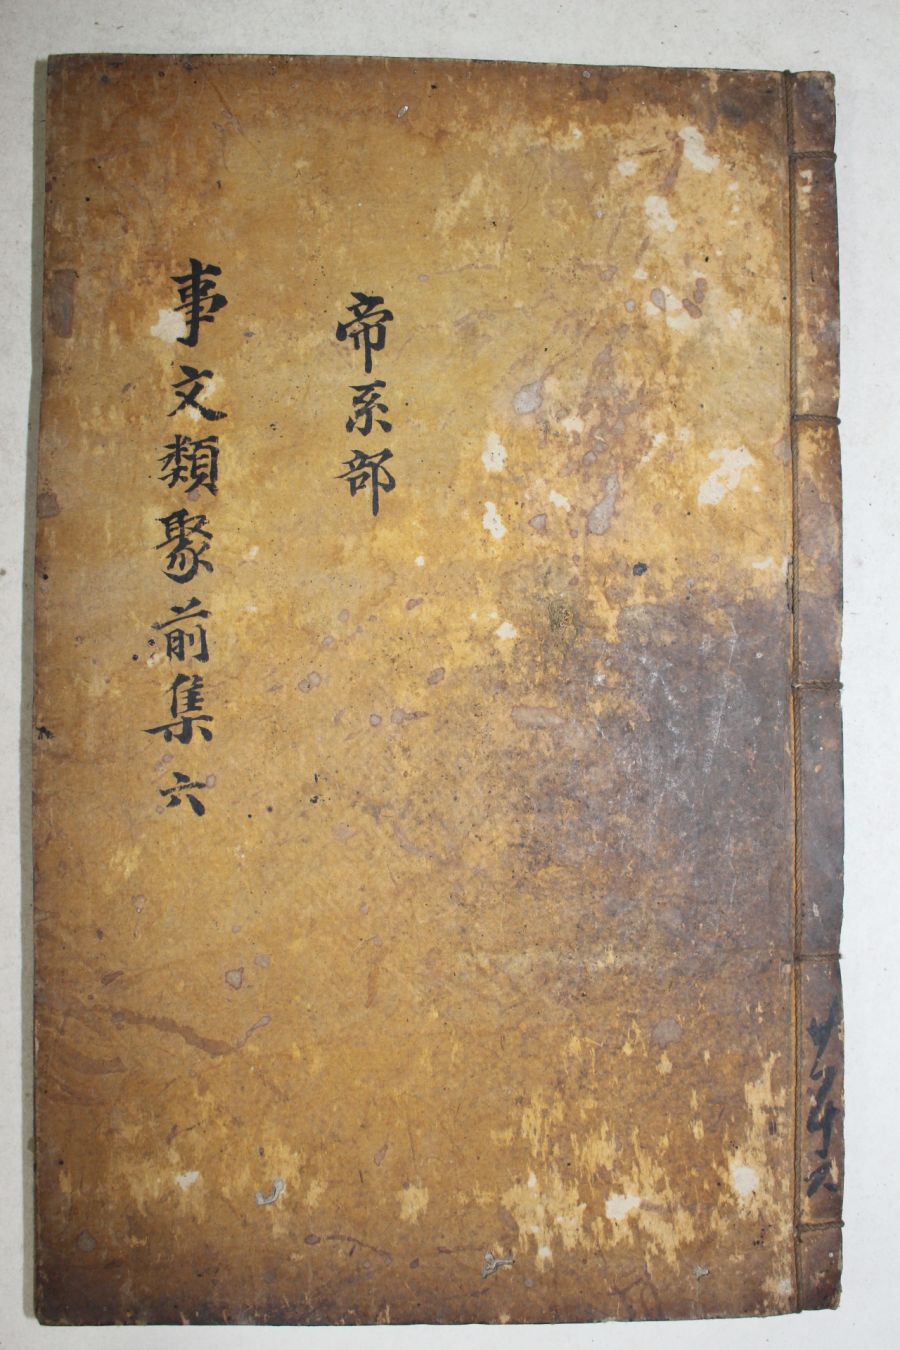 帝系部
事文類聚前集 六